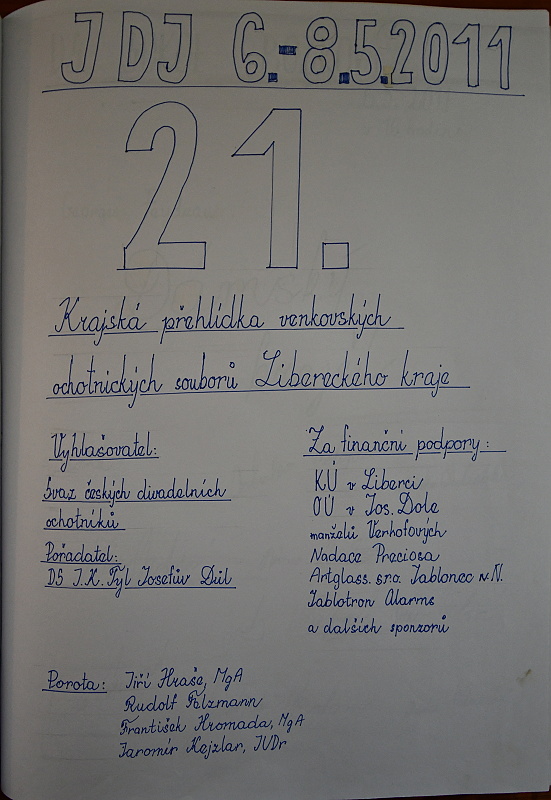 JDJ 6.-8.5.2011
21.
Krajská přehlídka venkovských
ochotnických souborů Libereckého kraje
Vyhlašovatel:
Svaz českých divadelních
ochotníků
Pořadatel:
DS J.K.Tyl Josefův Důl
Za finanční podpory:
KÚ v Liberci
OÚ v Jos. Dole
manželů Verhofových
Nadace Preciosa
Artglass. s.r.o. Jablonec n.N.
Jablotron Alarms
a dalších sponzorů
Porota: Jiří Hraše, MgA
Rudolf Felzmann
František Hromada, MgA
Jaromír Kejzlar, JUDr